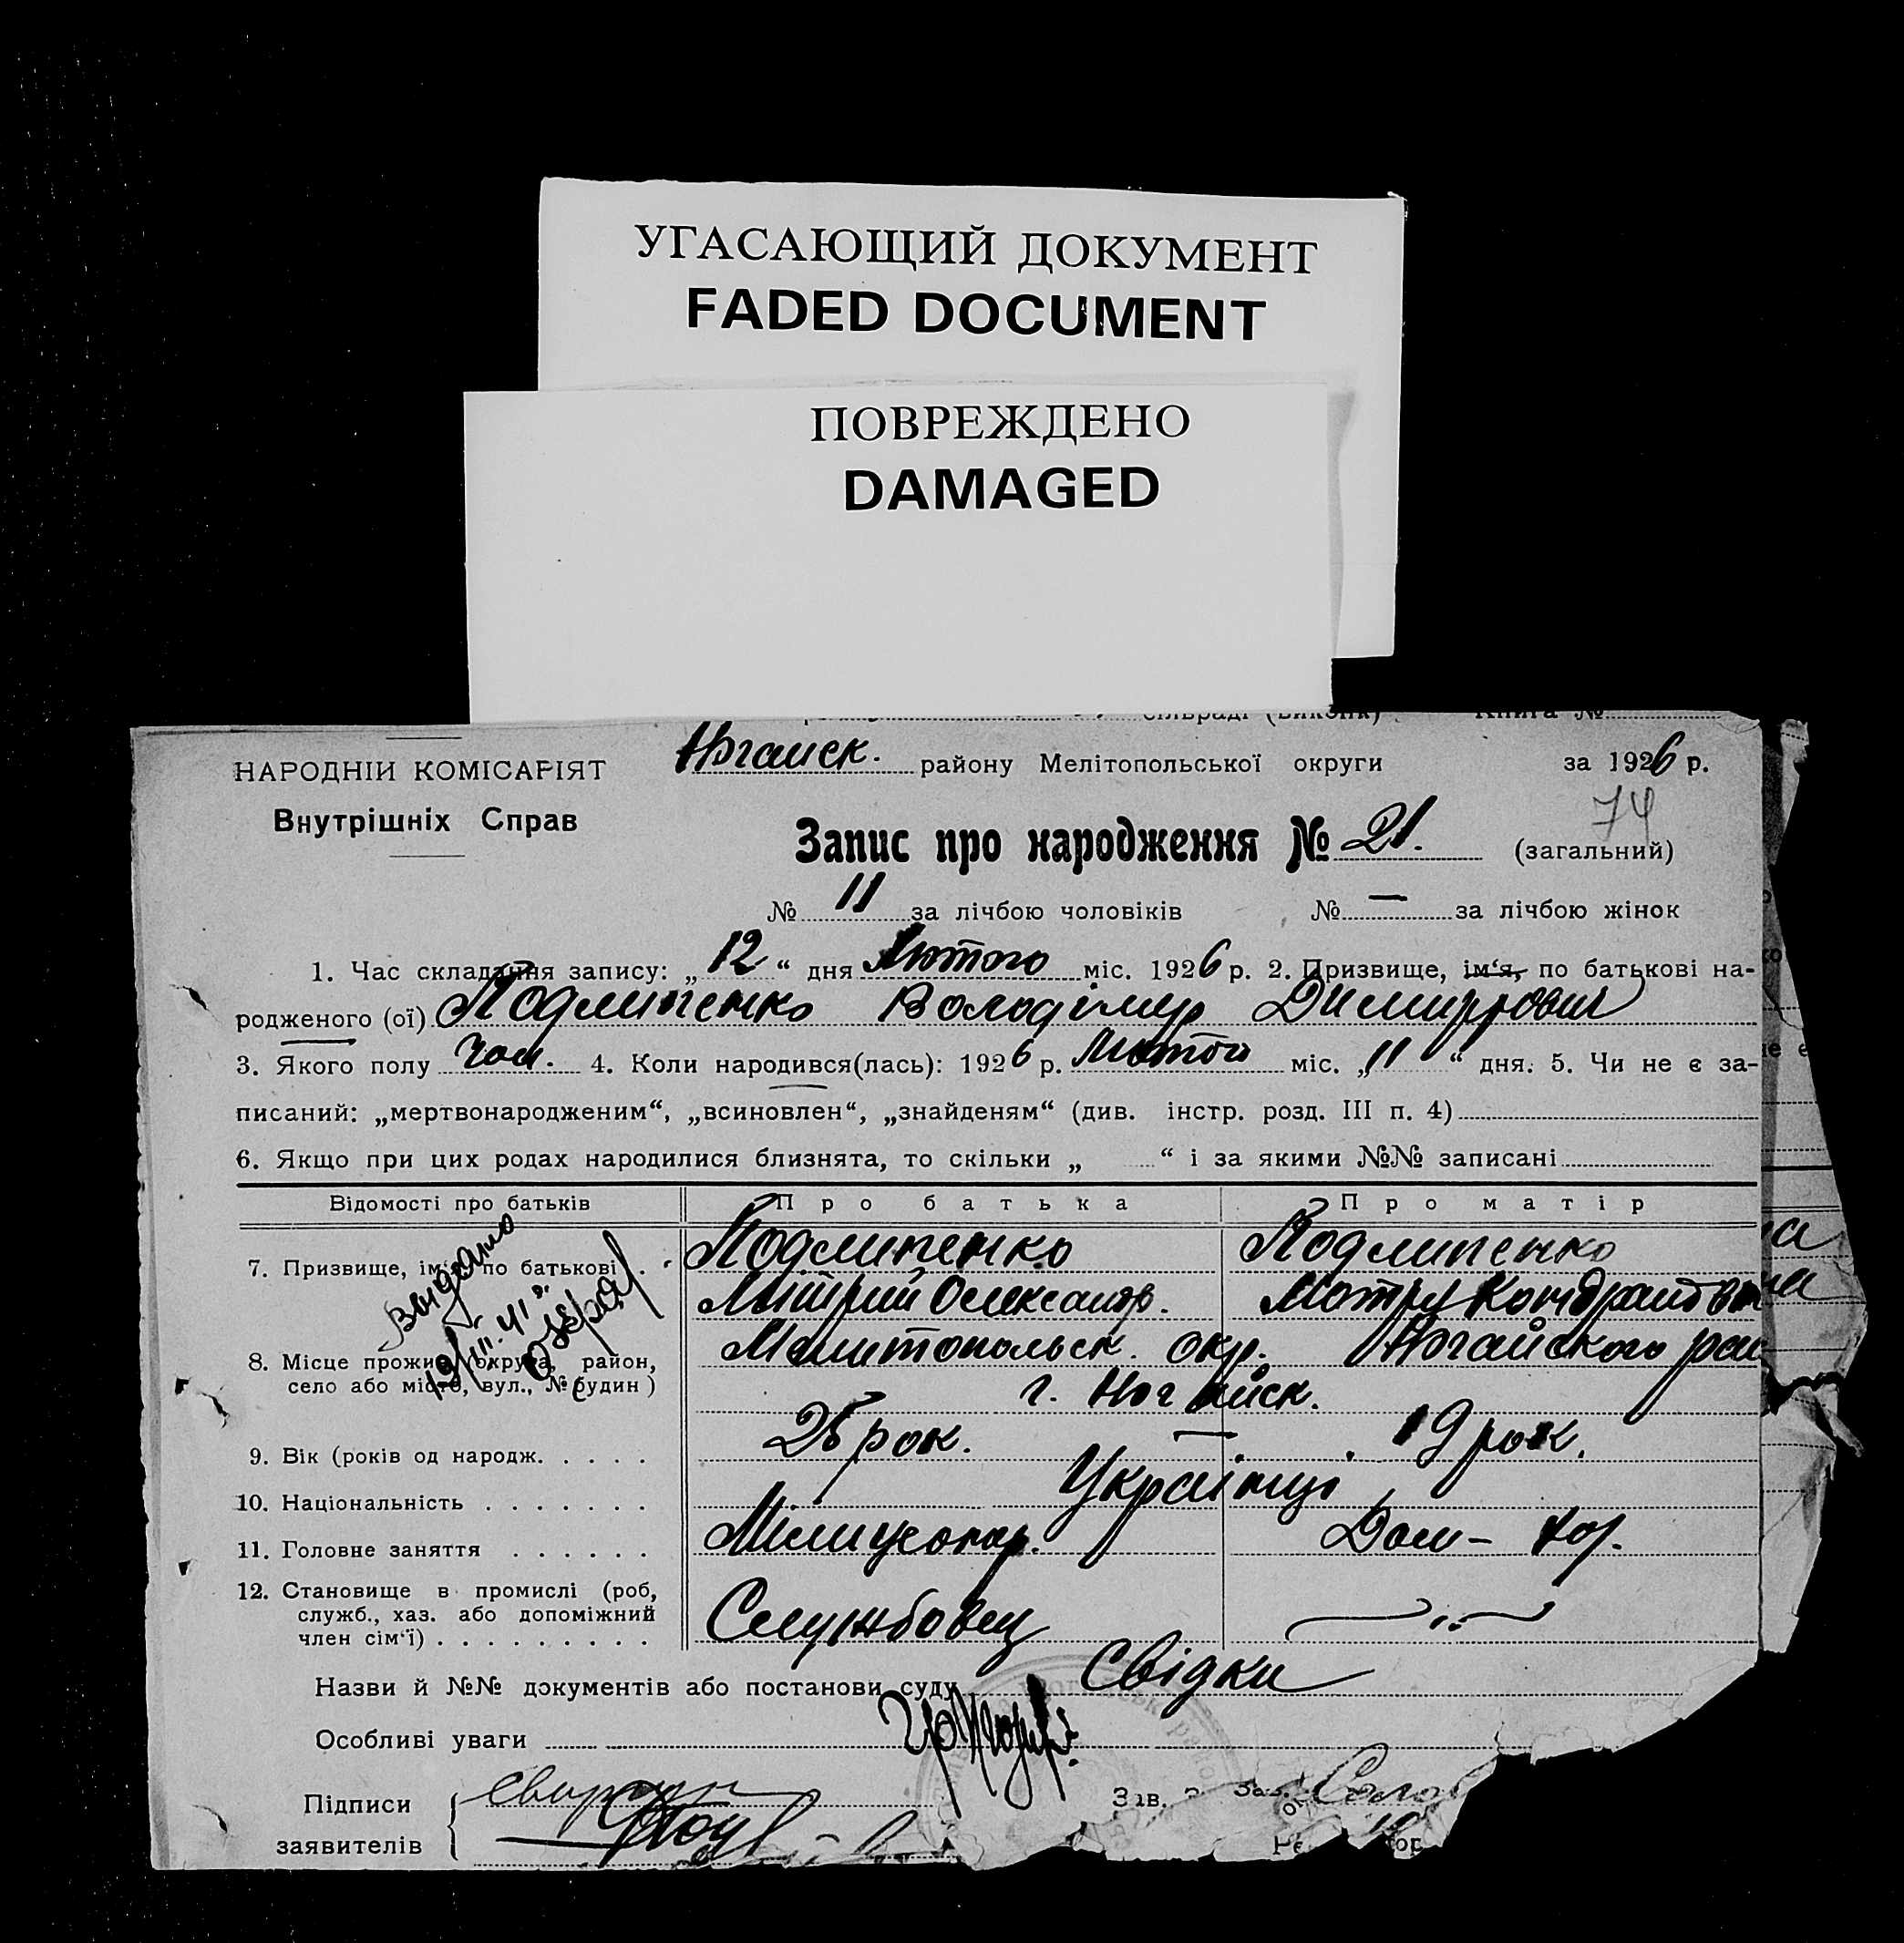 УГАСАЮЩИЙ ДОКУМЕНТ
FADED DOCUMENT
ПОВРЕЖДЕНО
DAMAGED
Ногайск. району Мелітопольської округи за 1926 р.
НАРОДНІЙ КОМІСАРІЯТ
Внутрішніх Справ
74
Запис про народження № 21. (загальний)
№ 11 за лічбою чоловіків № — за лічбою жінок
1. Час складання запису: „12“ дня Лютого міс. 1926 р. 2. Призвище, ім‘я, по батькові на-
родженого (ої) Подлипенко Володімир Димитрович
3. Якого полу Чол. 4. Коли народився(лась): 1926 р. Лютого міс. „11“ дня. 5. Чи не є за-
писаний: „мертвонародженим“, „всиновлен“, „знайденям“ (див. інстр. розд. III п. 4)
6. Якщо при цих родах народилися близнята, то скільки „ “ і за якими №№ записані
Відомості про батьків Про батька Про матір
7. Призвище, ім‘я, по батькові Подлипенко Подлипенко
Олександр. Мотря
видано
19/III.41
8. Місце прожив. (округа, район, Мелитопольск. окр. Ногайского
село або місто, вул., № будин) г. Ногайск.
9. Вік (років од народж. 25 рок. — 19 рок.
10. Національність Українці
11. Головне заняття Міліцеонер. Дом –
12. Становище в промислі (роб, Службовец
служб., хаз. або допоміжний
член сім‘ї)
Назви й №№ документів або постанови суду Свідки
Особливі уваги
Підписи
заявителів
Зав.